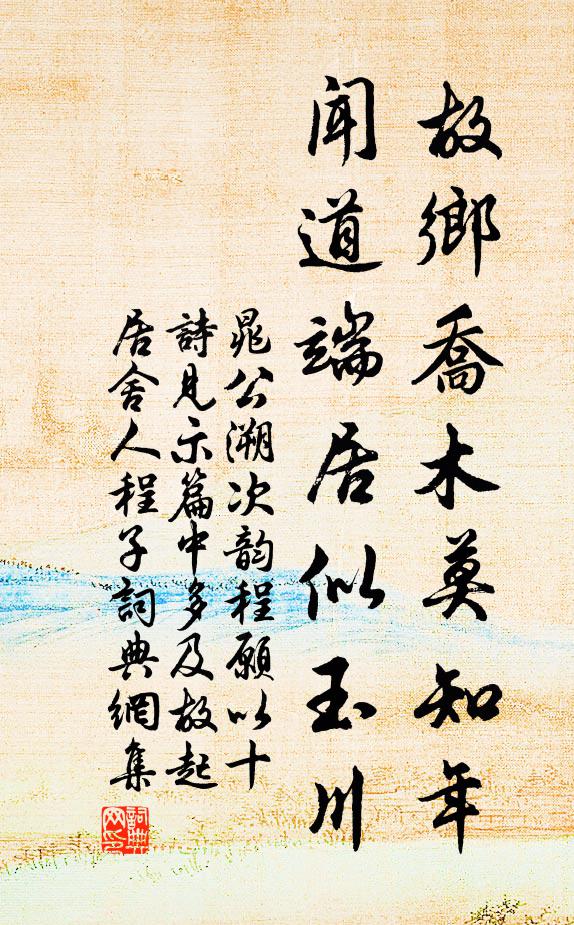 故鄉喬木莫知年
聞道端居似玉川
晁公溯次韵程願以十
詩見示篇中多及故起
居舍人程子詞典網集
詞典
网印